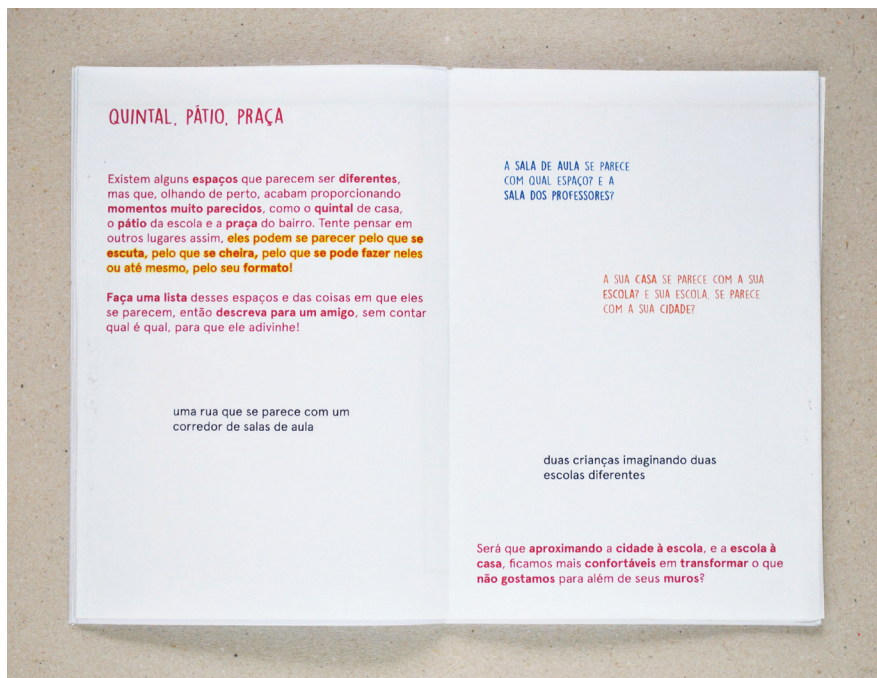 QUINTAL, PÁTIO, PRAÇA
Existem alguns espaços que parecem ser diferentes,
mas que, olhando de perto, acabam proporcionando
momentos muito parecidos, como o quintal de casa,
o pátio da escola e a praça do bairro. Tente pensar em
outros lugares assim, eles podem se parecer pelo que se
escuta, pelo que se cheira, pelo que se pode fazer neles
ou até mesmo, pelo seu formato!
Faça uma lista desses espaços e das coisas em que eles
se parecem, então descreva para um amigo, sem contar
qual é qual, para que ele adivinhe!
uma rua que se parece com um
corredor de salas de aula
A SALA DE AULA SE PARECE
COM QUAL ESPAÇO? E A
SALA DOS PROFESSORES?
A SUA CASA SE PARECE COM A SUA
ESCOLA? E SUA ESCOLA, SE PARECE
COM A SUA CIDADE?
duas crianças imaginando duas
escolas diferentes
Será que aproximando a cidade à escola, e a escola à
casa, ficamos mais confortáveis em transformar o que
não gostamos para além de seus muros?